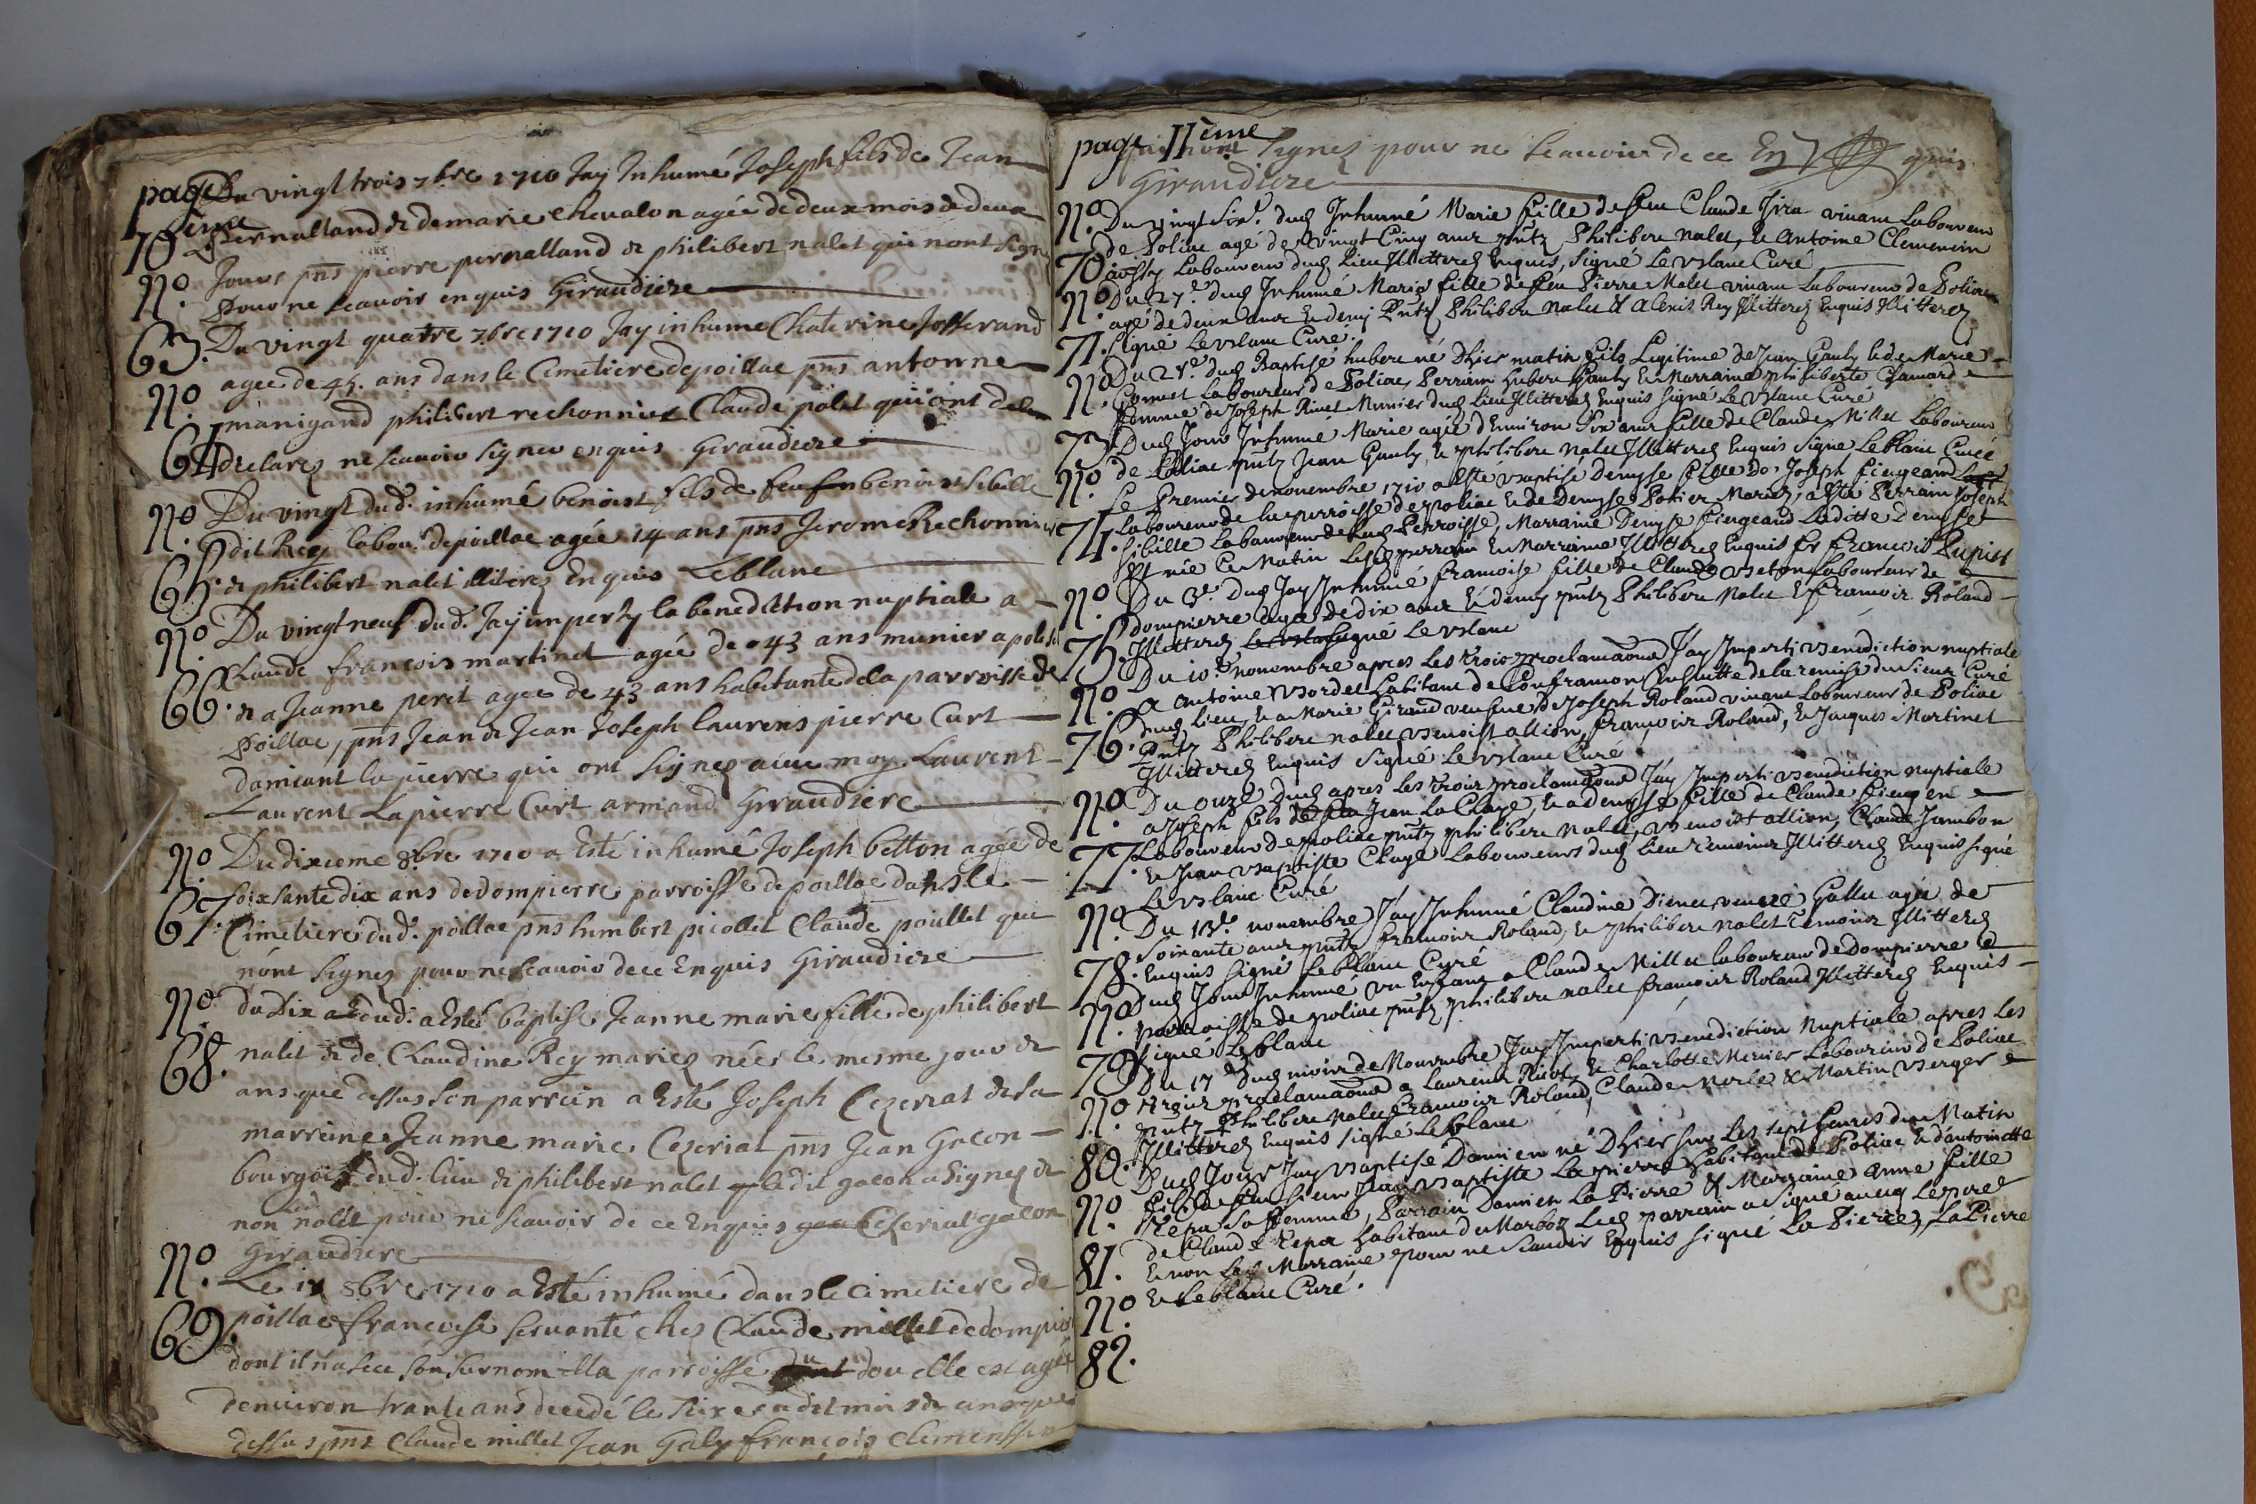 page Du vingt trois 7bre 1710 Jay Inhumé Joseph fils de Jean
10 eme pernalland & de marie chevalon agée de deux mois & deux
No. Jours pns pierre pernalland & philibert nalet qui nont signe
63. pour ne scavoir enquis Giraudiere
Du vingt quatre 7bre 1710 Jay inhume Chaterine Josserand
No. agee de 45. ans dans le Cimetiere de poillac pns antoine
64 manigand philibert rechonnier Claude polet qui ont
declarez ne scavoir signer enquis Giraudiere
No. Du vingt dud. inhumé benoist fils de feu benoist sibille
65. dit Rey labou. de poillac agée 14 ans pns Jerome Rechonnier
& philibert nalet illiterez Enquis Leblanc
No. Du vingt neuf dud. Jay imperty la benediction nuptiale a
66. Claude françois martinet agée de 43 ans munier a
& a Jeanne perit agee de 43 ans habitante de la parroisse de
poillac, pns Jean & Jean Joseph laurens pierre Curt
damient lapierre qui ont signez avec moy Laurent
Laurent Lapierre Curt armand Giraudiere
No. Du dixieme 8bre 1710 a Esté inhumé Joseph betton agée de
67. soixsante dix ans de dompierre parroisse de poillac dans le
Cimetiere dud. poillac pns humbert picollet Claude poullet qui
nont signez pour ne scavoir de ce Enquis Giraudiere
No. du Dix dud. a Esté baptise Jeanne marie fille de philibert
68. nalet & de Claudine Rey mariez néer le mesme jour &
ans que dessus son parrein a Esté Joseph Cezeriat & sa
marreine Jeanne marie Cezeriat pns Jean Gacon
bourgois dud. lieu & philibert nalet ledit gacon a Signez &
non nalet pour ne scavoir de ce Enquis Ceseriat gacon
Giraudiere
No. Le 8bre 1710 a Esté inhumé dans le cimetiere de
69. poillac françoise servante ches Claude millet de dompier
dont il na sceu son surnom Ila parroisse dou elle est agée
denviron trante ans decedé le dit mois & ans que
dessus pns Claude millet Jean Galy françois
page 11eme nont signez pour ne scavoir de ce
Giraudiere
No. Du vingt six. dud Inhumé Marie fille de feu Claude vivant Laboureur
70 de Poliac agé de vingt Cinq ans pntz Philibert nalet, & Antoine
Laboureur dud lieu Illitterez Enquis, signé Leblanc Curé
No. Du 27e dud Inhumé Marie fille de feu Pierre Malet vivant Laboureur de Poliac
71. agé de deux ans & demy Pntz Philibert nalet & Alexis Rey Illitterez Enquis
signé Leblanc Curé.
No. Du dud Baptisé hubert né dhier matin fils Legitime de Jean Gauly & de Marie
Cornet Laboureur de Poliac, Perrain hubert Gauly & Marraine philiberte Chanard
73. femme de Joseph Rivet Munier dud lieu Illitterez Enquis signé Leblanc Curé
Dud Jour Inhumé Marie agée d'Environ six ans fille de Claude Millet Laboureur
No. de Poliac pntz Jean Gauly, & philibert nalet Illitterez Enquis signé Leblanc Curé
Le Premier de novembre 1710 a esté baptise Denyse fille de Joseph fiugeand
74. Laboureur de la perroisse de poliac & de Denyse Potier Mariez, a esté Perrain Joseph
sibille Laboureur de lad Perroisse, Marraine Denyse fiugeand Laditte denyse
est née Ce Matin perrain & Marraine Illitterez Enquis
No. Du 3e dud Jay Inhumé francoise fille de Claude beton Laboureur de
75. dompierre agée de dix ans & demy pntz Philibert nalet & francois Roland
Illitterez signé Leblanc
No. Du 10e novembre apres Les trois proclamaons Jay Imperti benediction nuptiale
a Antoine bordet habitant de Confrançon Ensuitte de la remise du sieur Curé
76. dud lieu & a Marie Giraud veufue de Joseph Roland vivant Laboureur de Poliac
Pntz Philibert nalet, benoist allion, françois Roland, & Jacques Martinet
Illitterez Enquis signé Leblanc Curé
No. Du onze dud apres Les trois proclamaons Jay Imperti benediction nuptiale
a Joseph fils de Jean La Claye, & a denyse fille de Claude
77. Laboureur de poliac pntz philibert nalet, benoist allion, Claude Jambon
& Jean baptiste Claye Laboureurs dud lieu temoins Illitterez Enquis signé
Leblanc Curé
No. Du 13e novembre Jay Inhumé Claudine veuve Gallu agée de
78. soixante ans pntz francois Roland, & philibert nalet temoins Illitterez
Enquis signé Leblanc Curé
No. Dud Jour Inhumé un Enfant a Claude Millet laboureur de dompierre
parroisse de poliac pntz philibert nalet francois Roland Illitterez Enquis
79. signé Leblanc
No. Du 17e dud mois de Novembre Jay Imperti benediction Nuptiale apres Les
trois proclamaons a Laurent Rivet, & Charlotte Mercier Laboureur de Poliac
80. pntz Philibert nalet francois Roland, Claude Merle & Martin berger
Illitterez Enquis signé Leblanc
No. Dud Jour Jay baptise Damien né Dhier sur Les sept heures du Matin
fils de sieur Jean baptiste La pierre habitant de Poliac & d'antoinette
sa femme, Parrain Damien La Pierre & Marraine anne fille
81. de Claude habitant de Marboz Led parrain a signé
& non Lad Marraine pour ne scavoir Enquis signé La Pierre, La Pierre
No. & Leblanc Curé.
82.